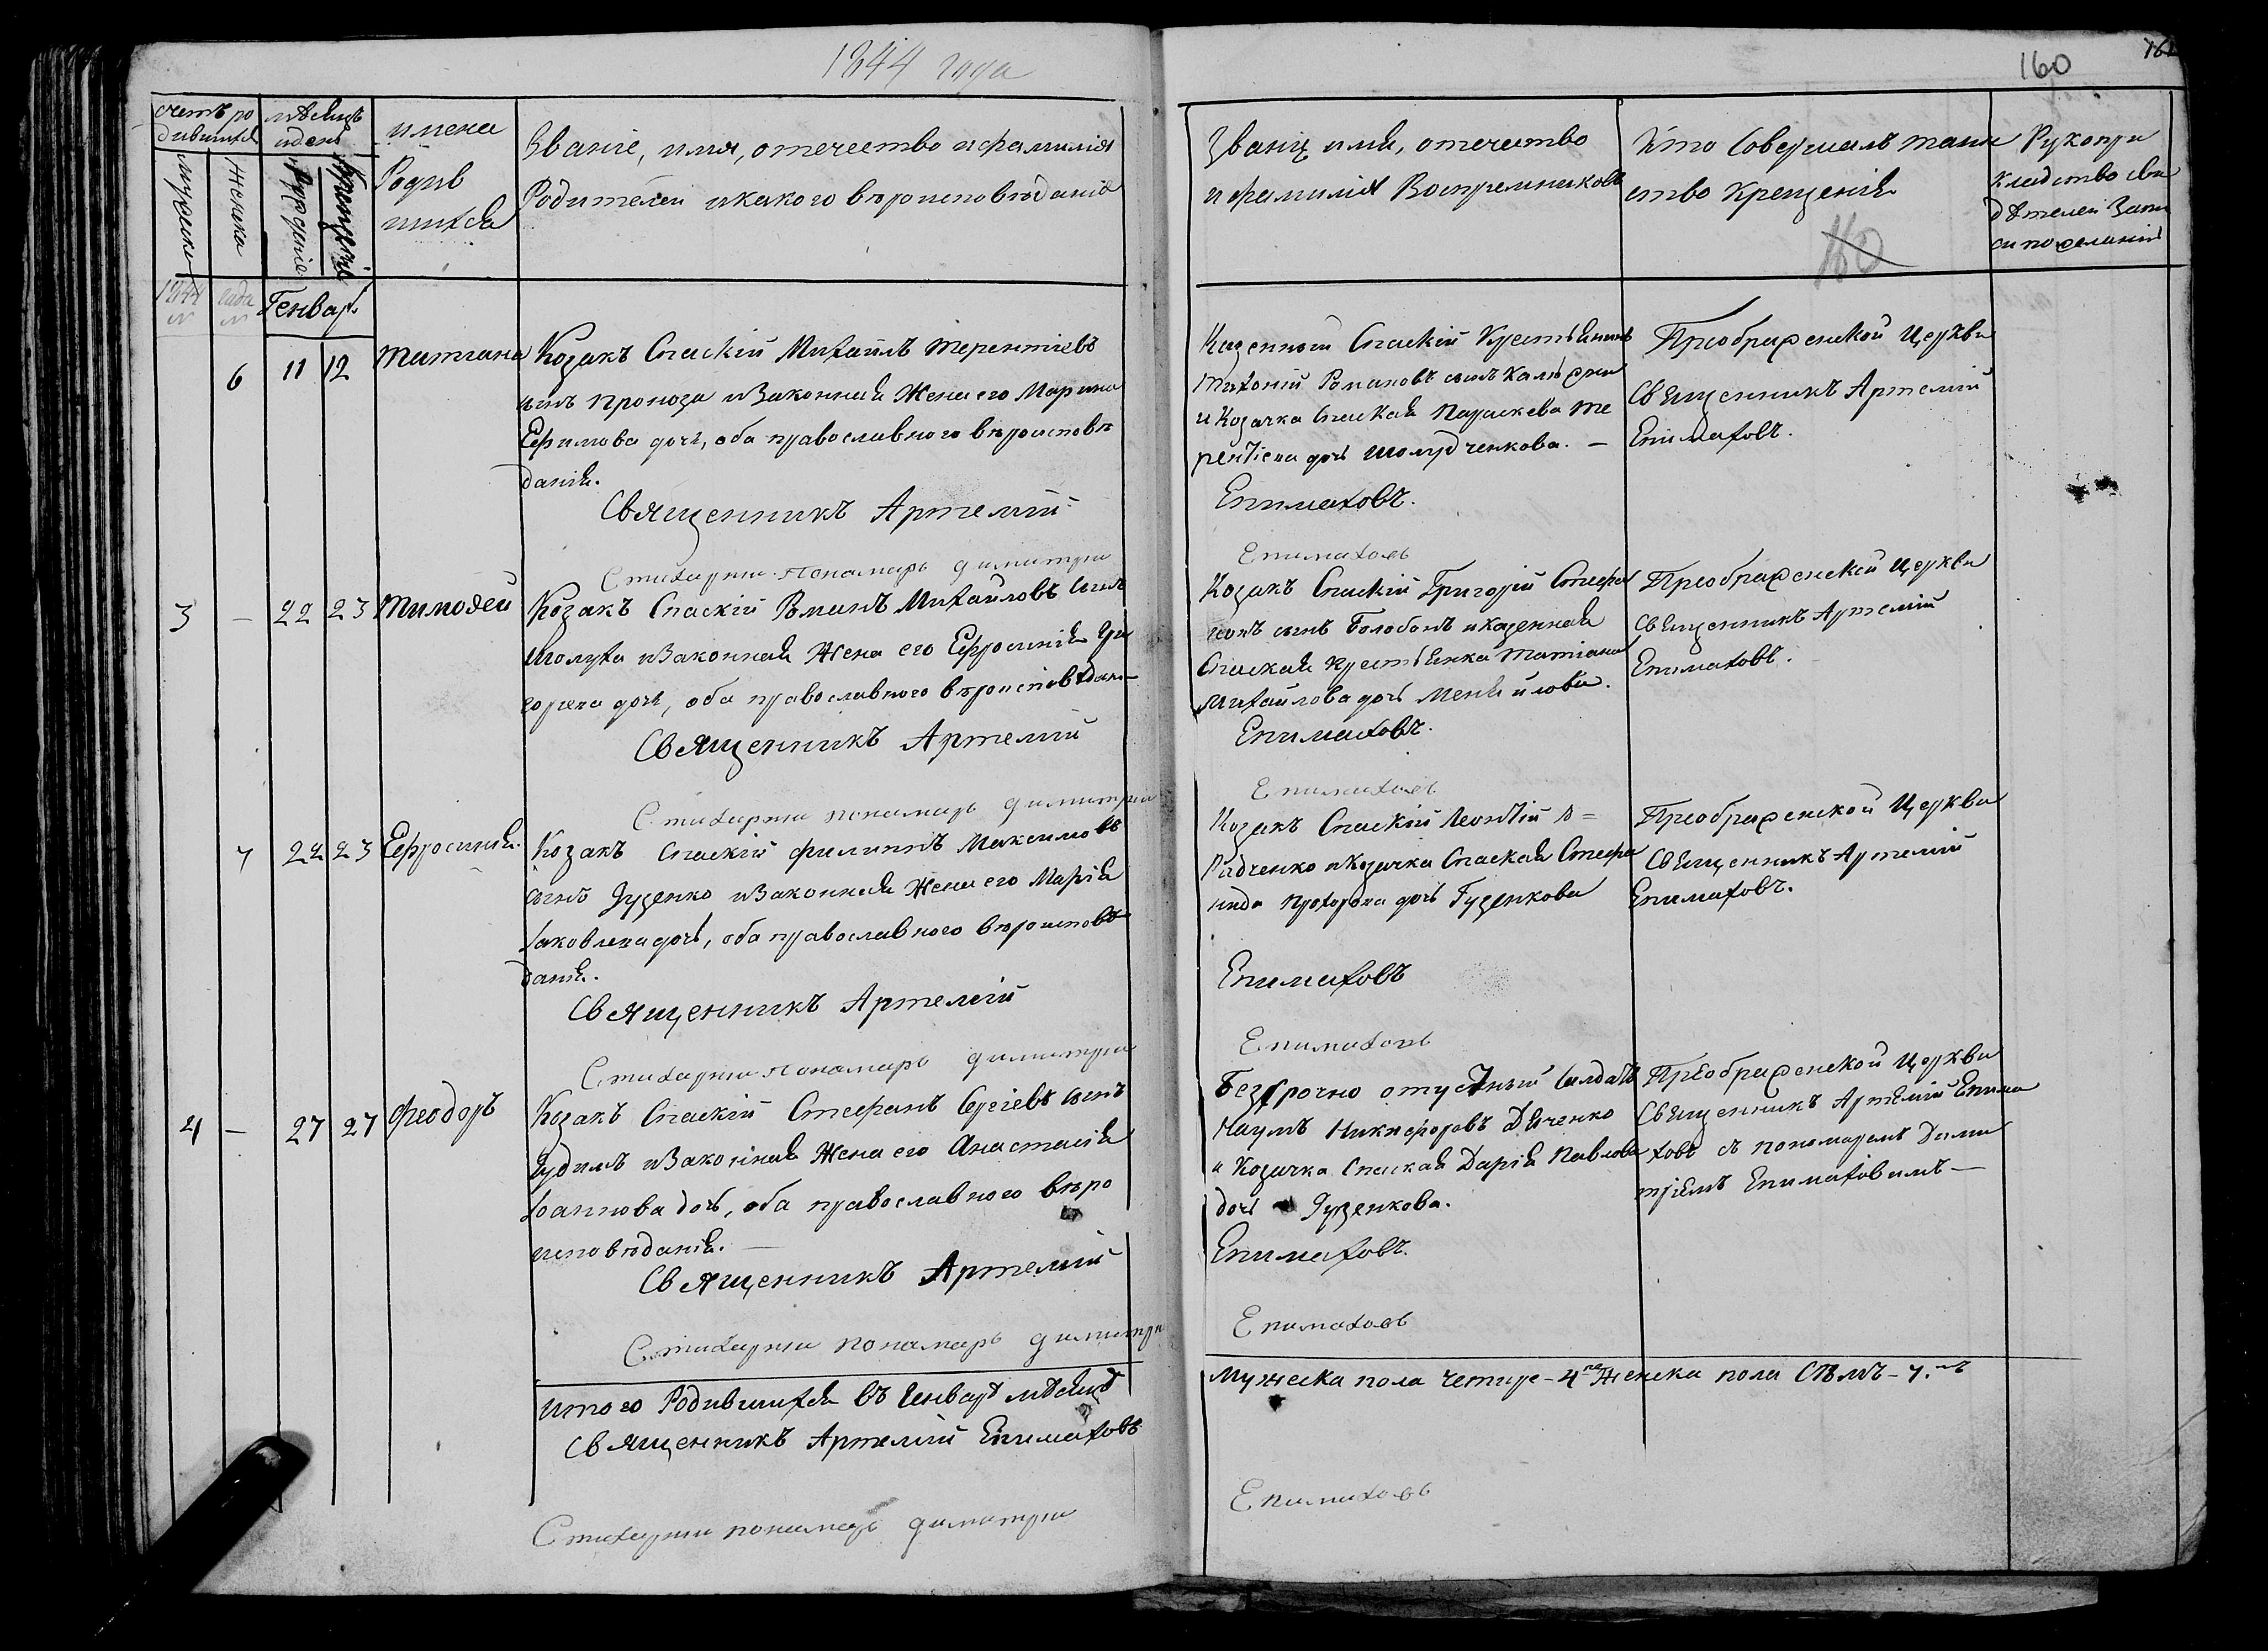 1844 года
160
счетъ ро
дившихся
мѣсяцъ
и день
имена
Родив
шихся
Званіе, имя, отечество и фамилія
Родителей и какого вѣроисповѣданія
мужеска
женска
Рожденіе
Крещеніе
Званіе имя, отечество
и фамилія Воспріемниковъ
Кто Совершалъ таин
ство Крещенія
Рукопри
кладство сви
дѣтелей Запи
си по желанію
160
1844 года
Генвар.
6 11 12 Татіана
Козакъ Спаскій Михаилъ Терентіевъ
сынъ Проноза и Законная Жена его Марина
Ефимова дочь, оба православного вѣроисповѣ
данія.
Священникъ Артемій
Стихарни Пономарь Димитри
Казенный Спаскій Крестьянинъ
Тихоній Романовъ сынъ
и Козачка Спаская Параскева Те
рентіева дочь Шолудченкова. —
Епимаховъ.
Епимаховъ
Преображенской Церкви
Священникъ Артемій
Епимаховъ.
3 — 22 23 Тимоѳей
Козакъ Спаскій Романъ Михайловъ сынъ
Шолуха и Законная Жена его Ефросинія Гри
горева дочь, оба православного вѣроисповѣдані
Священникъ Артемій
Стихарни пономарь Димитри
Козакъ Спаскій Григорій Стефа
новъ сынъ Болобонъ и казенная
Спаская крестьянка Татіана
Михайлова дочь
Епимаховъ.
Епимаховъ
Преображенской Церкви
Священникъ Артемій
Епимаховъ.
7 22 23 Ефросинія.
Козакъ Спаскій Филиппъ Максимовъ
сынъ Гузенко и Законная Жена его Марія
Іаковлева дочь, оба православного вѣроисповѣ
данія.
Священникъ Артемій
Стихарни Пономарь Димитри
Козакъ Спаскій Леонтій
Радченко и Козачка Спаская Стефа
нида Прохорова дочь Гузенкова
Епимаховъ
Епимаховъ
Преображенской Церкви
Священникъ Артемій
Епимаховъ.
4 — 27 27 Феодоръ
Козакъ Спаскій Стефанъ Сергіевъ сынъ
Чудимъ и Законная Жена его Анастасія
Іоаннова дочь, оба православного вѣро
исповѣданія. —
Священникъ Артемій
Стихарни пономарь Димитри
Безсрочно отпускный Салдатъ
Наумъ Никифоровъ Дяченко
и Козачка Спаская Дарія Павлова
дочь Гузенкова.
Епимаховъ.
Епимаховъ
Преображенской Церкви
Священникъ Артемій Епима
ховъ съ пономаремъ Дими
тріемъ Епимаховымъ —
Итого Родившихся въ Генварѣ мѣсяцѣ
Мужеска пола четыре - 4ре Женска пола Сѣмъ - 7.мъ
Священникъ Артемій Епимаховъ
Стихарни пономарь Димитри
Епимаховъ